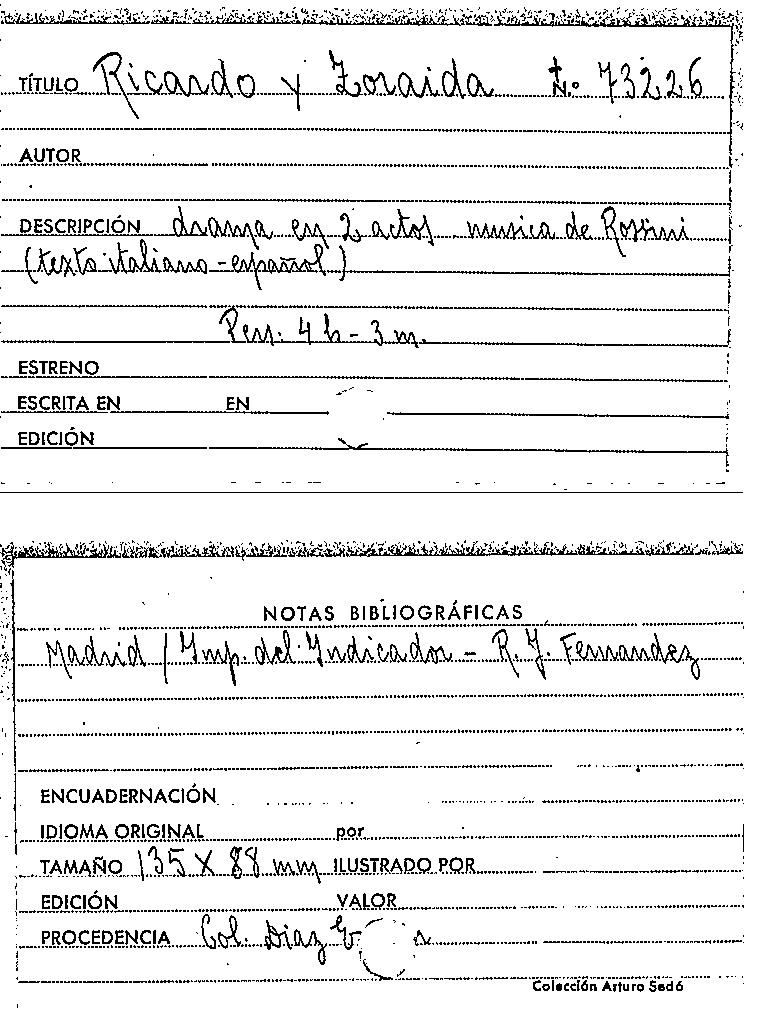 TÍTULO Ricardo y Zoraida N.º 73226
AUTOR
DESCRIPCIÓN drama en 2 actos musica de Rossini
(texto italiano-español)
Pers: 4 h - 3 m.
ESTRENO
ESCRITA EN EN
EDICIÓN
NOTAS BIBLIOGRÁFICAS
Madrid / Imp. del Indicador - R. J. Fernandez
ENCUADERNACIÓN
IDIOMA ORIGINAL por
TAMAÑO 135 X 88 mm ILUSTRADO POR
EDICIÓN VALOR
PROCEDENCIA Col. Diaz
Colección Arturo Sedó